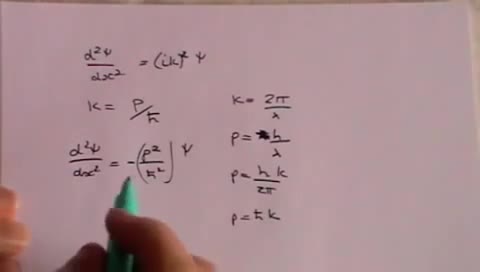 d²Ψ/dx² = (ik)² Ψ
k = p/ħ
d²Ψ/dx² = -(p²/ħ²) Ψ
k = 2π/λ
p = h/λ
p = h k/2π
p = ħk